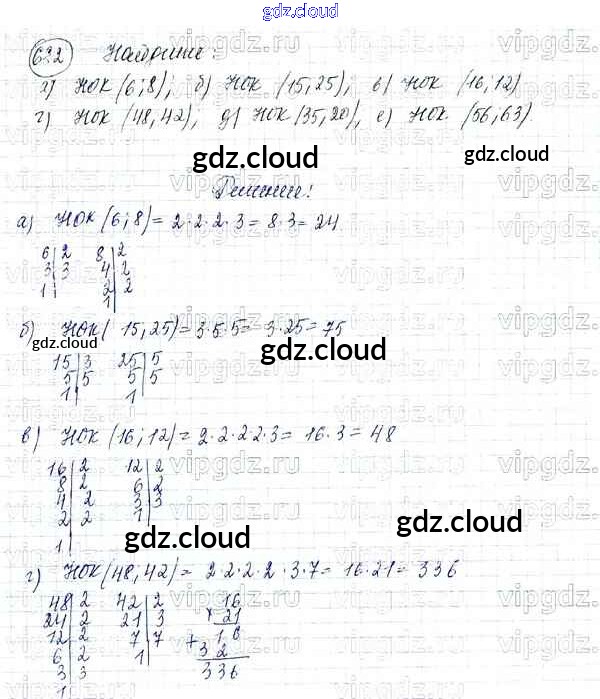 gdz.cloud
gdz.cloud
632 Найдите:
а) НОК (6;8); б) НОК (15,25); в) НОК (16,12)
г) НОК (48,42); д) НОК (35,20), е) НОК (56,63).
gdz.cloud gdz.cloud
Решение!
а) НОК (6;8) = 2·2·2·3 = 8·3 = 24
6 2 8 2
3 3 4 2
1 2 2
1
б) НОК (15,25) = 3·5·5 = 3·25 = 75
gdz.cloud gdz.cloud
15 3 25 5
5 5 5 5
1 1
в) НОК (16;12) = 2·2·2·2·3 = 16·3 = 48
16 2 12 2
8 2 6 2
4 2 3 3
2 2 1
1
gdz.cloud gdz.cloud
г) НОК (48,42) = 2·2·2·2·3·7 = 16·21 = 336
48 2 42 2 16
24 2 21 3 × 21
12 2 7 7 + 16
6 2 1 32
3 3 336
1